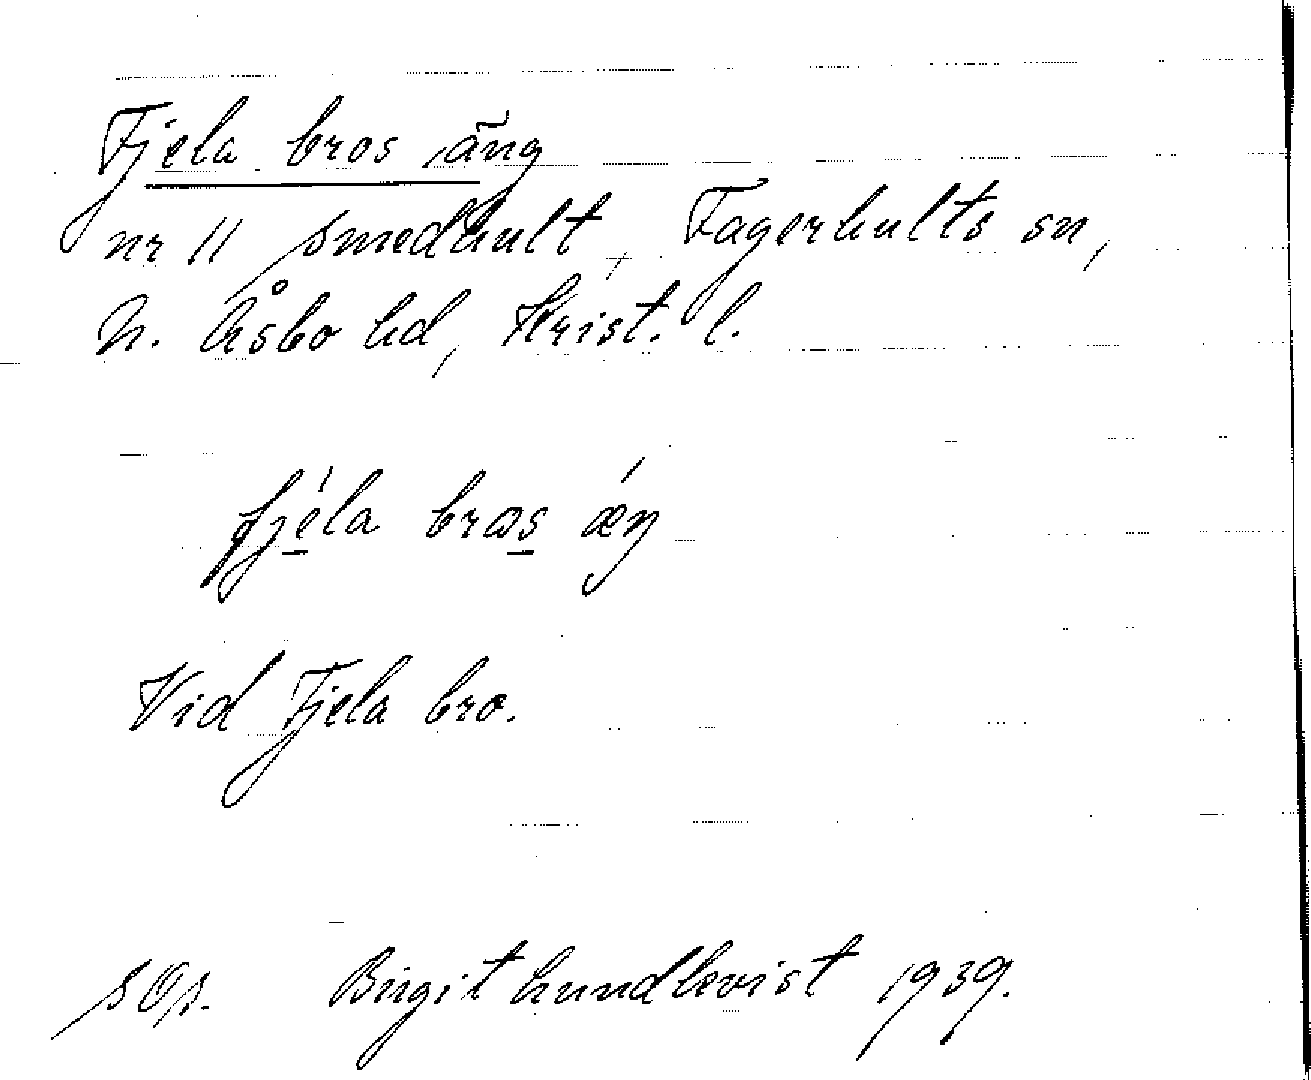 Fjela bros äng
nr 11 Smedhult, Fagerhults sn,
N. Åsbo hd, Krist. l.
fjéla bros ǽŋ
Vid Fjela bro.
Birgit Lundkvist 1939.